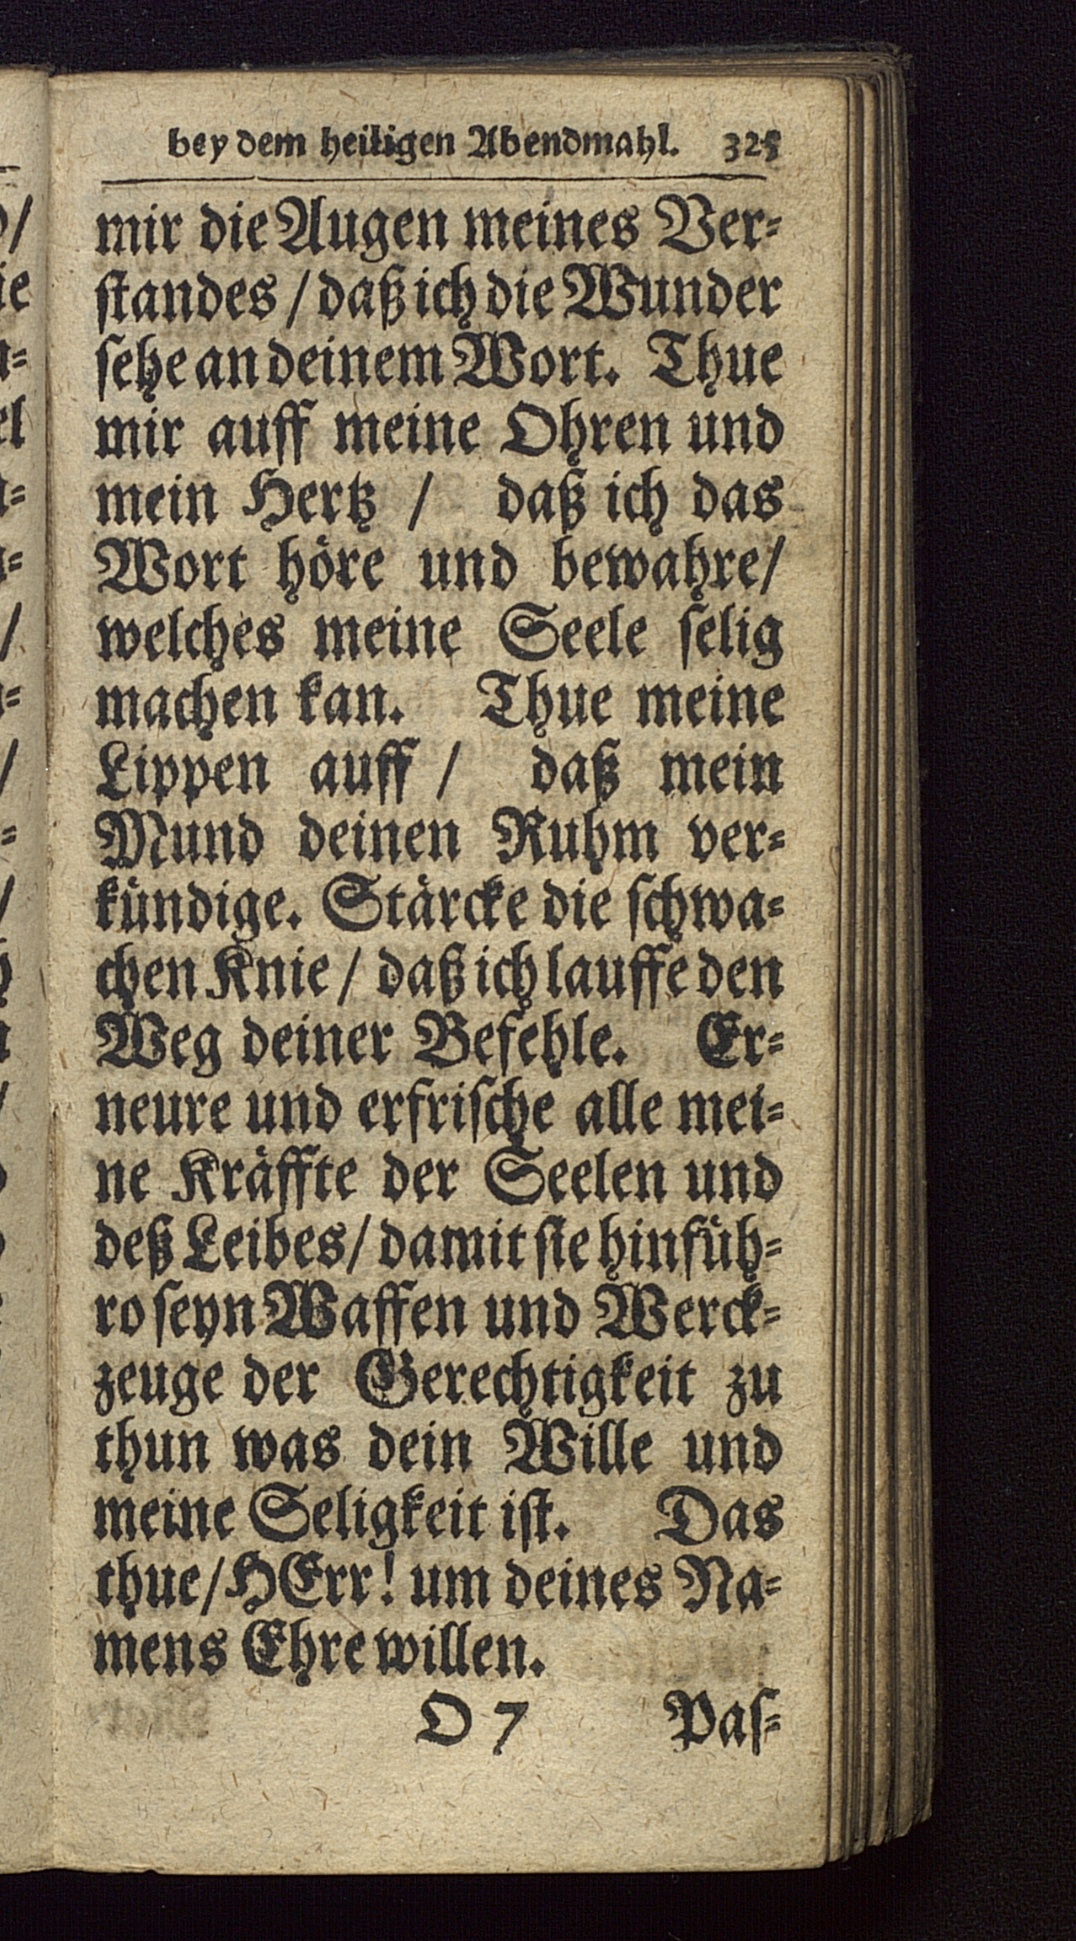 bey dem heiligen Abendmahl. 325
mir die Augen meines Ver⸗
ſtandes / daß ich die Wunder
ſehe an deinem Wort. Thue
mir auff meine Ohren und
mein Hertz / daß ich das
Wort höre und bewahre/
welches meine Seele ſelig
machen kan. Thue meine
Lippen auff / daß mein
Mund deinen Ruhm ver⸗
kündige. Stärcke die ſchwa⸗
chen Knie / daß ich lauffe den
Weg deiner Befehle. Er⸗
neure und erfriſche alle mei⸗
ne Kräffte der Seelen und
deß Leibes/ damit ſie hinfüh⸗
ro ſeyn Waffen und Werck⸗
zeuge der Gerechtigkeit zu
thun was dein Wille und
meine Seligkeit iſt. Das
thue/ HErr! um deines Na⸗
mens Ehre willen.
O 7 Paſ⸗